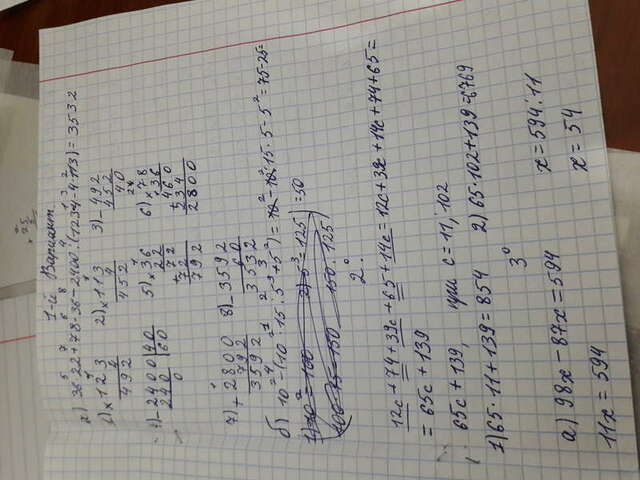 1-й Вариант
а) 36·22+78·36-2400:(123·4-4·113)=3532
1) ×123 4 492 2) ×113 4 452 3) -492 452 40
4) -2400 40 240 60 0 5) ×36 22 +72 72 792 6) ×78 36 +460 234 2800
7) +2800 792 3592 8) -3592 60 3532
б) 10⁴-(10²·15:5³+5²)=10²-10²·15·5-5²=75-25=
1) 10²=100 2) 5³=125 =50
100·15=150 150:125
2°
12c+74+39c+65+14c=12c+39c+14c+74+65=
=65c+139
65c+139, при c=11;102
1) 65·11+139=854 2) 65·102+139=6769
3°
а) 98x-87x=594 x=594:11
11x=594 x=54